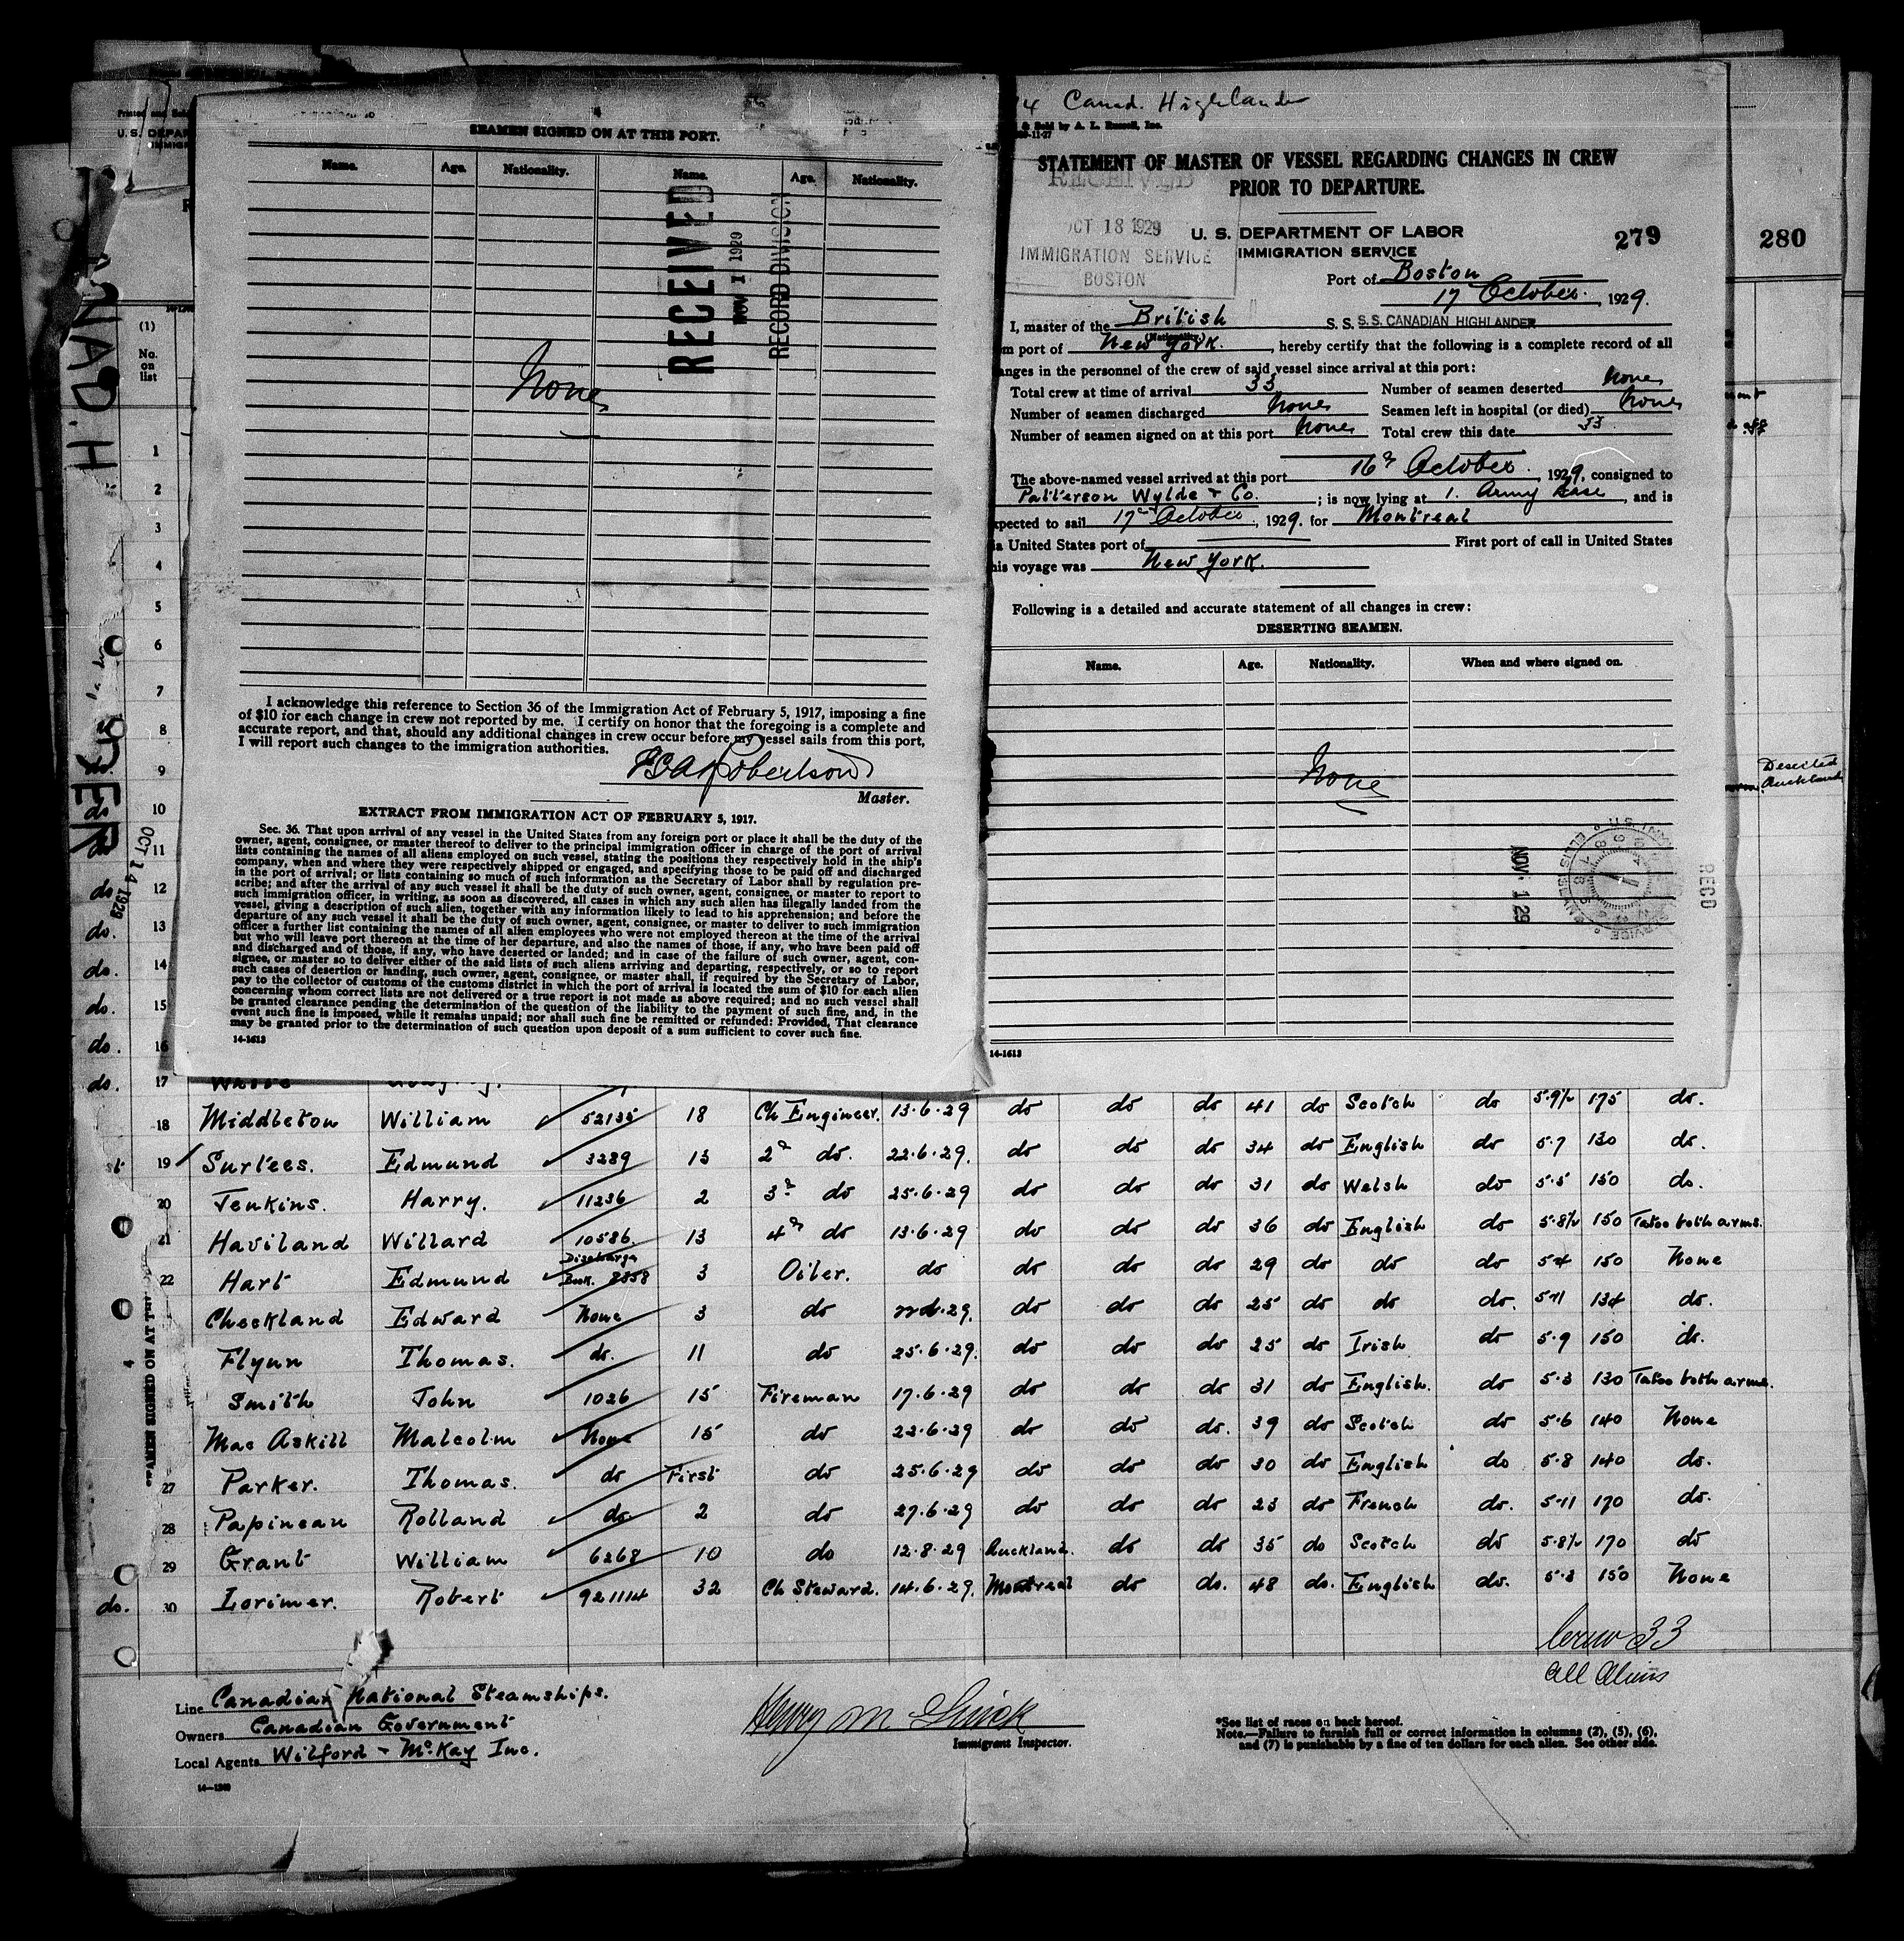 SEAMEN SIGNED ON AT THIS PORT.
Name. Age. Nationality. Name. Age. Nationality.
RECEIVED
NOV 1 1929
RECORD DIVISION
None
I acknowledge this reference to Section 36 of the Immigration Act of February 5, 1917, imposing a fine
of $10 for each change in crew not reported by me. I certify on honor that the foregoing is a complete and
accurate report, and that, should any additional changes in crew occur before my vessel sails from this port,
I will report such changes to the immigration authorities.
Robertson
Master.
EXTRACT FROM IMMIGRATION ACT OF FEBRUARY 5, 1917.
Sec. 36. That upon arrival of any vessel in the United States from any foreign port or place it shall be the duty of the
owner, agent, consignee, or master thereof to deliver to the principal immigration officer in charge of the port of arrival
lists containing the names of all aliens employed on such vessel, stating the positions they respectively hold in the ship's
company, when and where they were respectively shipped or engaged, and specifying those to be paid off and discharged
in the port of arrival; or lists containing so much of such information as the Secretary of Labor shall by regulation pre-
scribe; and after the arrival of any such vessel it shall be the duty of such owner, agent, consignee, or master to report to
such immigration officer, in writing, as soon as discovered, all cases in which any such alien has illegally landed from the
vessel, giving a description of such alien, together with any information likely to lead to his apprehension; and before the
departure of any such vessel it shall be the duty of such owner, agent, consignee, or master to deliver to such immigration
officer a further list containing the names of all alien employees who were not employed thereon at the time of the arrival
but who will leave port thereon at the time of her departure, and also the names of those, if any, who have been paid off
and discharged and of those, if any, who have deserted or landed; and in case of the failure of such owner, agent, con-
signee, or master so to deliver either of the said lists of such aliens arriving and departing, respectively, or so to report
such cases of desertion or landing, such owner, agent, consignee, or master shall, if required by the Secretary of Labor,
pay to the collector of customs of the customs district in which the port of arrival is located the sum of $10 for each alien
concerning whom correct lists are not delivered or a true report is not made as above required; and no such vessel shall
be granted clearance pending the determination of the question of the liability to the payment of such fine, and, in the
event such fine is imposed, while it remains unpaid; nor shall such fine be remitted or refunded: Provided, That clearance
may be granted prior to the determination of such question upon deposit of a sum sufficient to cover such fine.
14-1613
Canad. Highlander
& Sold by A. L. Russell, Inc.
STATEMENT OF MASTER OF VESSEL REGARDING CHANGES IN CREW
PRIOR TO DEPARTURE.
RECEIVED
OCT 18 1929
IMMIGRATION SERVICE
BOSTON
U. S. DEPARTMENT OF LABOR
IMMIGRATION SERVICE
279
280
Port of Boston
17 October. 1929.
I, master of the British S. S. S.S. CANADIAN HIGHLANDER
(Nationality)
m port of New York. , hereby certify that the following is a complete record of all
anges in the personnel of the crew of said vessel since arrival at this port:
Total crew at time of arrival 33 Number of seamen deserted None
Number of seamen discharged None Seamen left in hospital (or died) None
Number of seamen signed on at this port None Total crew this date 33
The above-named vessel arrived at this port 16th October. 1929, consigned to
Patterson Wylde & Co. ; is now lying at 1. Army Base , and is
xpected to sail 17th October , 1929. for Montreal
ia United States port of First port of call in United States
his voyage was New York.
Following is a detailed and accurate statement of all changes in crew:
DESERTING SEAMEN.
Name. Age. Nationality. When and where signed on.
None
NOV. 1 29
REC'D
14-1613
(1)
No.
on
list
1
2
3
4
5
6
7
8
9 Deserted Auckland
do 10
11
do 12
do. 13
do. 14
do. 15
do. 16
do. 17
OCT 14 1929
18 Middleton William 52135 18 Ch Engineer. 13.6.29 do do do 41 do Scotch do 5.9½ 175 do.
19 Surtees. Edmund 3289 13 2d do. 22.6.29. do do do 34 do English do 5.7 130 do.
20 Jenkins. Harry. 11236 2 3d do 25.6.29 do do do 31 do Welsh do 5.5 150 do.
21 Haviland Willard 10586. 13 4th do 13.6.29 do do do 36 do English do 5.8½ 150 Tatoo both arms.
22 Hart Edmund Discharge Book. 8358 3 Oiler. do do do do 29 do do do 5.4 150 None
Checkland Edward None 3 do do do do 25 do do do. 5.11 134 do.
Flynn Thomas. do. 11 do 25.6.29. do do do 25 do Irish do 5.9 150 do.
Smith John 1026 15 Fireman 17.6.29 do do do 31 do English. do 5.3 130 Tatoo both arms.
MacAskill Malcolm None 15 do 22.6.29 do do do. 39 do Scotch do 5.6 140 None
27 Parker. Thomas. do First do 25.6.29 do do do 30 do English do 5.8 140 do.
28 Papineau Rolland do. 2 do 27.6.29 do do do 23 do French do. 5.11 170 do.
29 Grant William 6268 10 do 12.8.29 Auckland. do do 35 do Scotch do 5.8½ 170 do
do. 30 Lorimer. Robert 921114 32 Ch Steward. 14.6.29. Montreal do do. 48 do. English do. 5.3 150 None
Crew 33
All Aliens
SEAMEN SIGNED ON AT THI
Line Canadian National Steamships.
Owners Canadian Government
Local Agents Wilford & McKay Inc.
14-1240
Immigrant Inspector.
*See list of races on back hereof.
Note.—Failure to furnish full or correct information in columns (2), (5), (6),
and (7) is punishable by a fine of ten dollars for each alien. See other side.